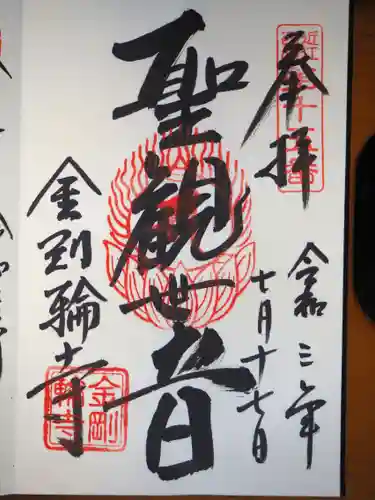 奉拝
近江
十五番
令和三年
七月十七日
聖観世音
金剛輪寺
金剛
輪寺